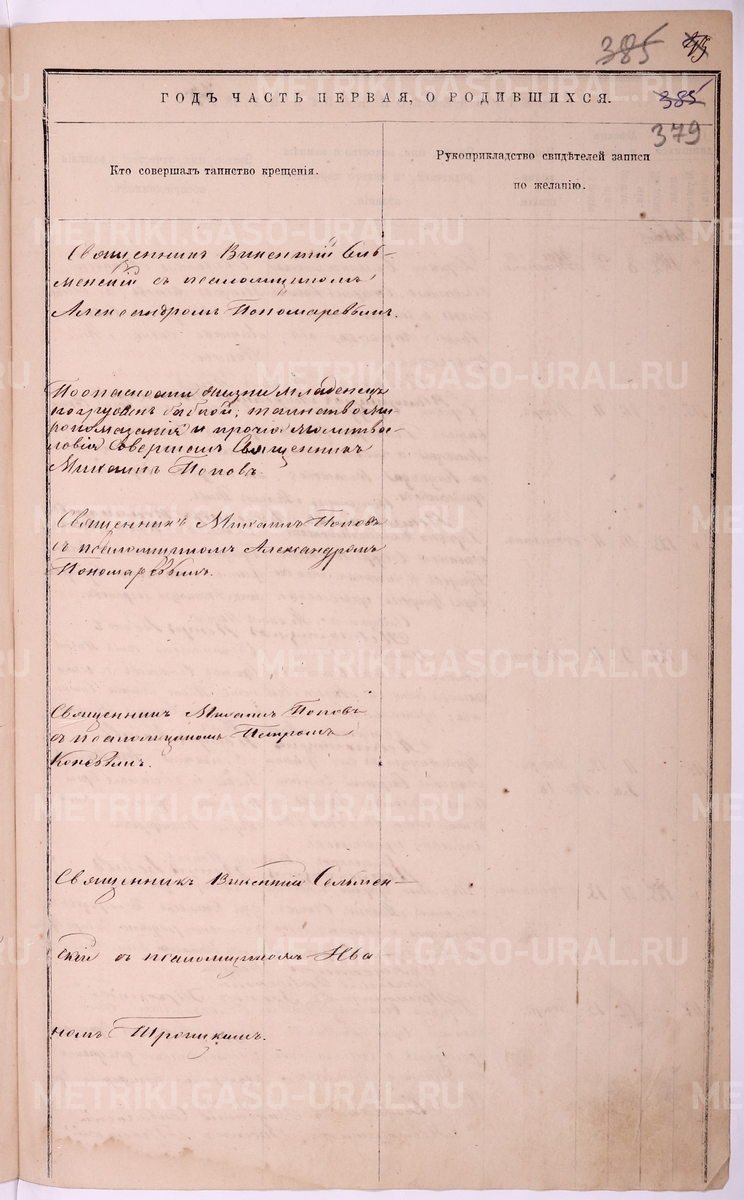 385
385
379
ГОДЪ ЧАСТЬ ПЕРВАЯ, О РОДИВШИХСЯ.
Кто совершалъ таинство крещенія.
Рукоприкладство свидѣтелей записи
по желанію.
Священникъ Викентій Сель-
менскій съ псаломщикомъ
Александромъ Пономаревымъ.
По опасности жизни младенецъ
погруженъ бабкой; таинство ми-
ропомазанія и прочія молитво-
словія совершалъ Священникъ
Михаилъ Поповъ.
Священникъ Михаилъ Поповъ
съ псаломщикомъ Александромъ
Пономаревымъ.
Священникъ Михаилъ Поповъ
съ псаломщикомъ Петромъ
Коневымъ.
Священникъ Викентій Сельмен-
скій съ псаломщикомъ Ива
номъ Троицкимъ.
METRIKI.GASO-URAL.RU